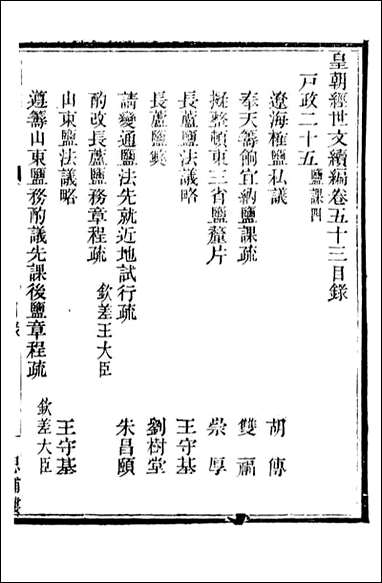 皇朝經世文續編卷五十三目錄
戶政二十五鹽課四
遼海榷鹽私議 胡傳
奉天籌餉宜納鹽課疏 雙福
擬整頓東三省鹽釐片 崇厚
長蘆鹽法議略 王守基
長蘆鹽弊 劉樹堂
請變通鹽法先就近地試行疏 朱昌頤
酌改長蘆鹽務章程疏 欽差王大臣
山東鹽法議略 王守基
遵籌山東鹽務酌議先課後鹽章程疏 欽差大臣